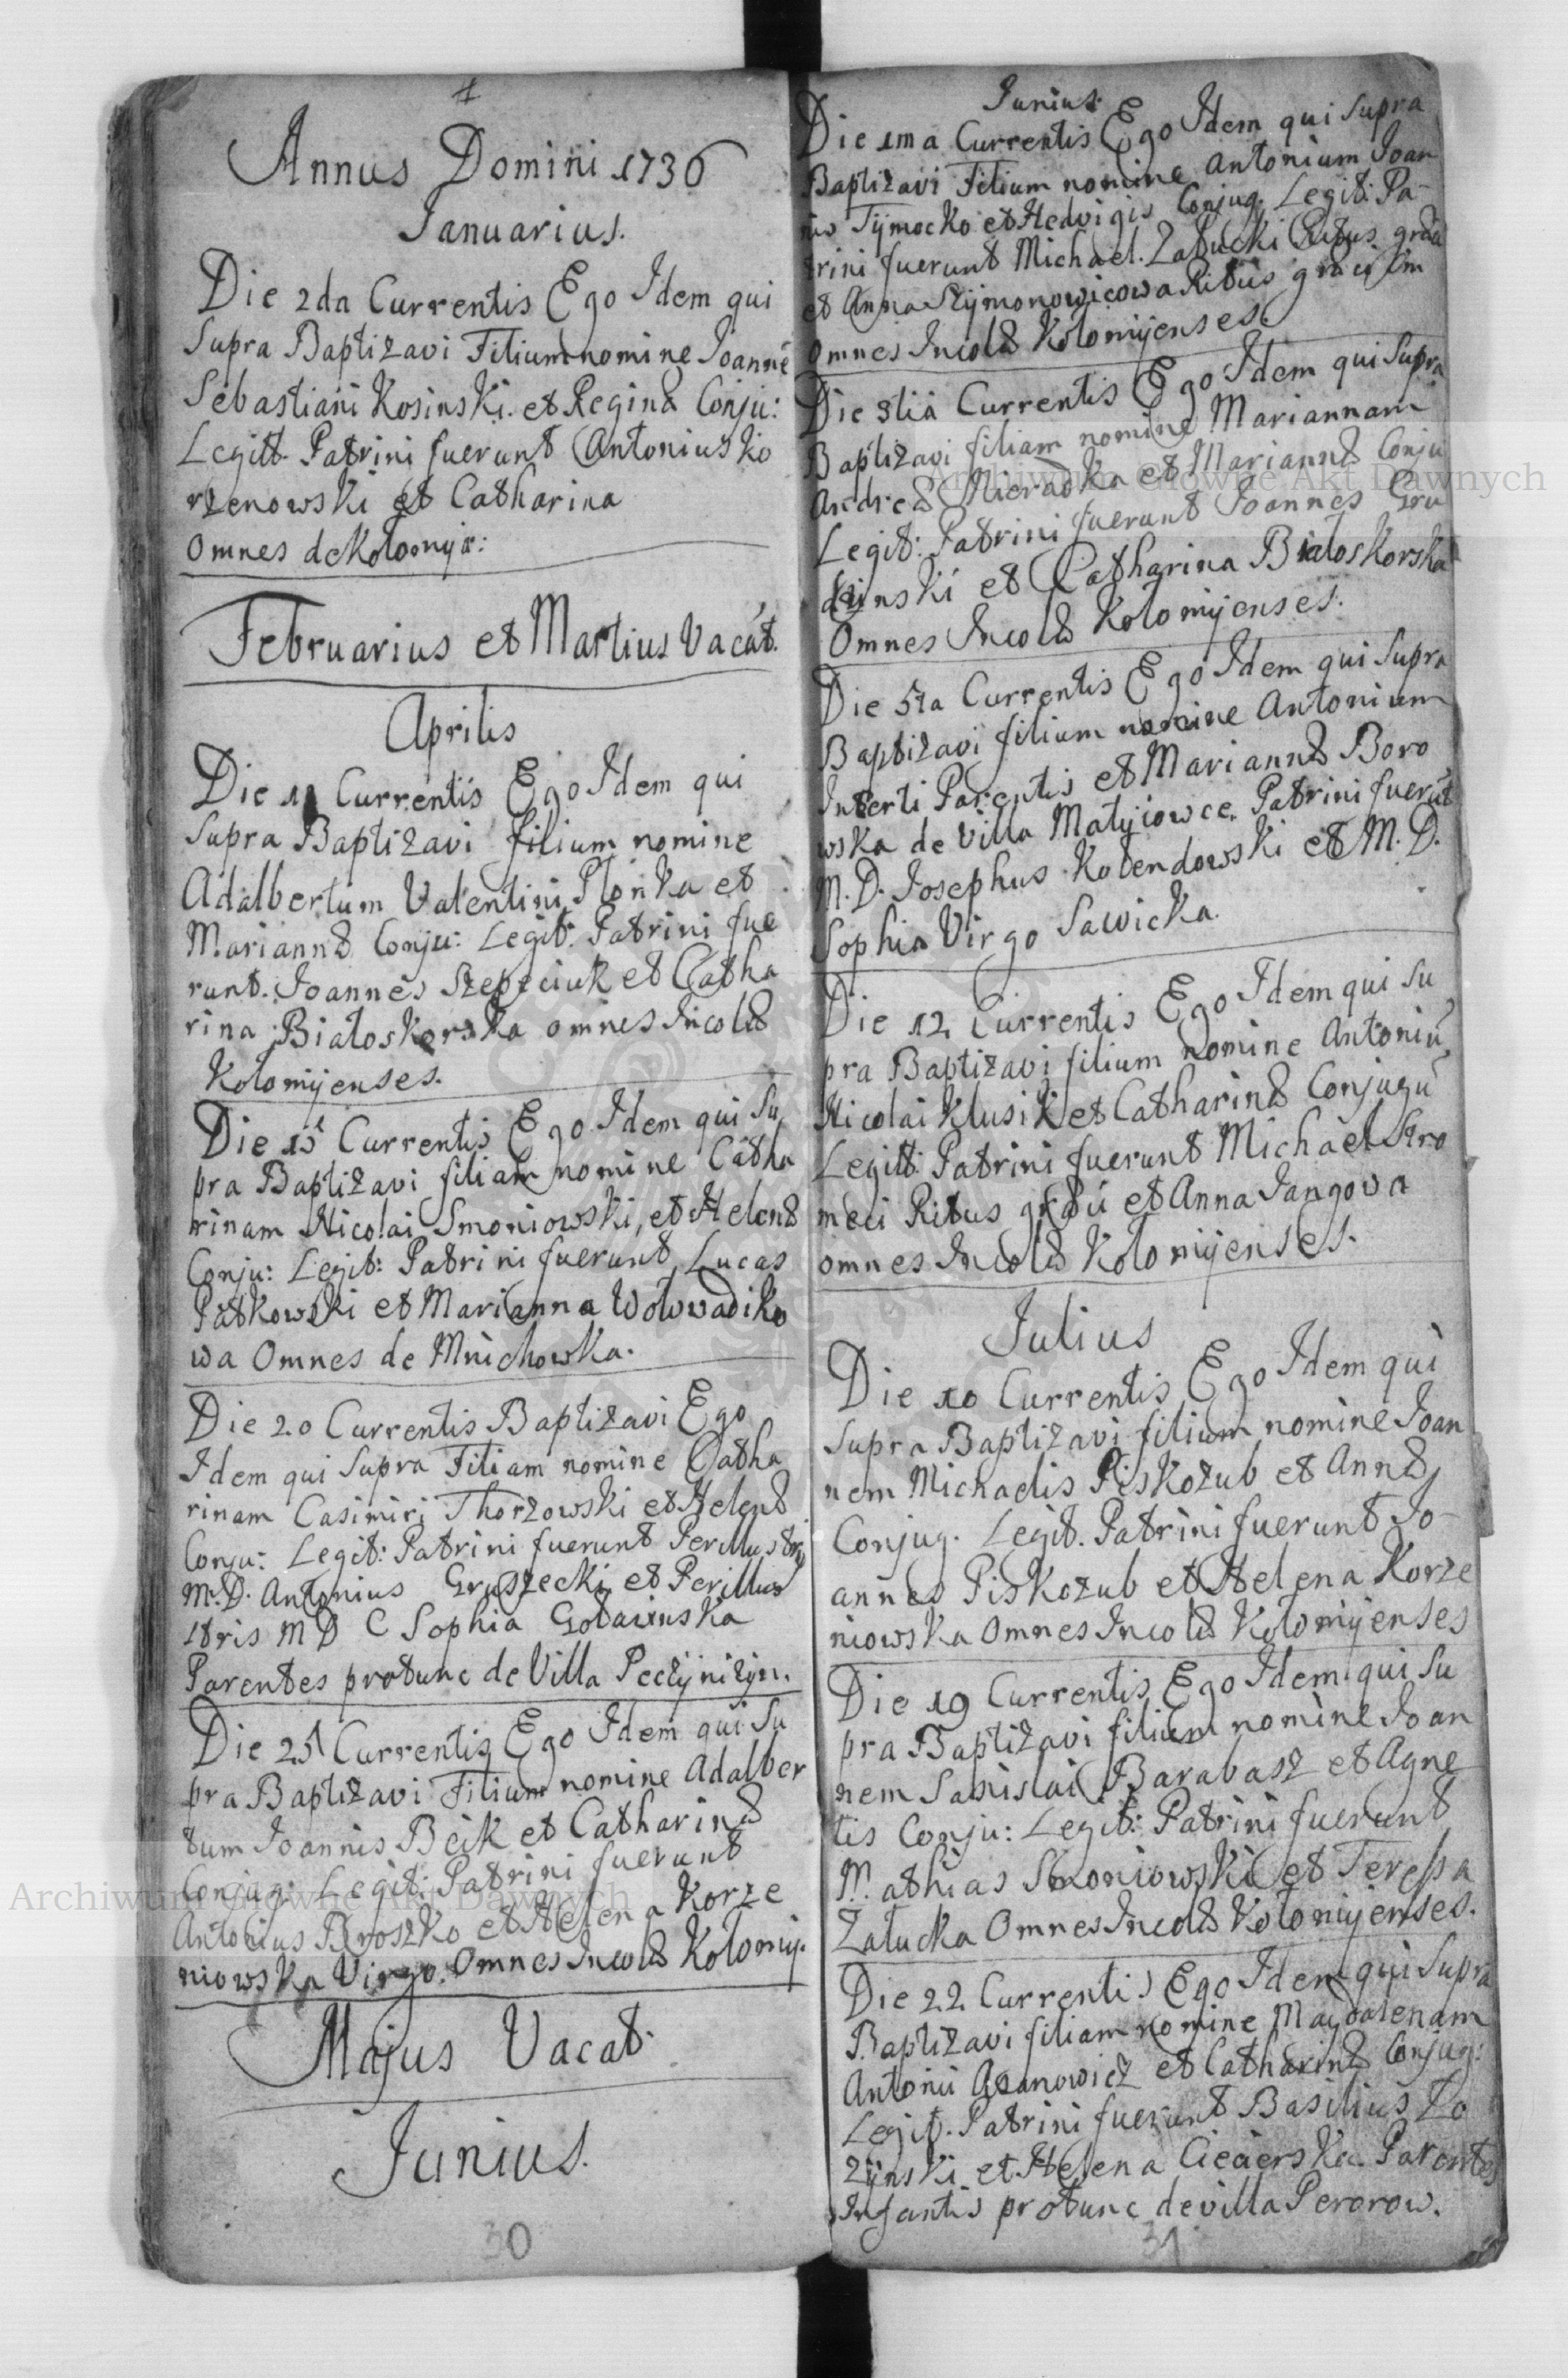 Annus Domini 1736
Januarius.
Die 2da Currentis Ego Idem qui
Supra Baptizavi Filium nomine Joannē
Sebastiani Kosinski et Reginæ Conju:
Legitt. Patrini fuerunt Antonius Ko
rzenowski et Catharina
Omnes de Kolomyæ:
Februarius et Martius Vacāt.
Aprilis
Die Currentis Ego Idem qui
Supra Baptizavi filium nomine
Adalbertum Valentini Płonka et
Mariannæ Conju: Legit: Patrini fue
runt. Joannes et Catha
rina Białoskorska omnes Incolæ
Kołomÿenses.
Die 15 Currentis Ego Idem qui Su
pra Baptizavi filiam nomine Catha
rinam Nicolai Smoniowski, et Helenæ
Conju: Legit: Patrini fuerunt Lucas
Patkowski et Marianna Wołowadiko
wa Omnes de Mnichowka.
Die 20 Currentis Baptizavi Ego
Idem qui Supra Filiam nomine Catha
rinam Casimiri Thorzowski et Helenæ
Conju: Legit: Patrini fuerunt Perillustris
M. D. Antonius Gruszecki et Perillus
stris M D C Sophia
Parentes protunc de Villa Peczÿniżÿn.
Die 25 Currentis Ego Idem qui Su
pra Baptizavi Filium nomine Adalber
tum Joannis Bėik et Catharinæ
Conjug: Legit: Patrini fuerunt
Antonius Broszko et Helena Korze
niowska Virgo. Omnes Incolæ Kołomÿ.
Majus Vacat.
Junius.
30
Junius.
Die 1ma Currentis Ego Idem qui Supra
Baptizavi Filium nomine Antonium Joan
nis Tÿmocko et Hedvigis Conjug. Legit: Pa-
trini fuerunt Michael. Załucki Ritus
et Anna Szÿmonowicowa Ritus
Omnes Incolæ Kołomÿenses.
Die 3tia Currentis Ego Idem qui Supra
Baptizavi filiam nomine Mariannam
Andreæ et Mariannæ Conju
Legit: Patrini fuerunt Joannes Gru
dzinski et Catharina Białoskorska
Omnes Incolæ Kołomÿenses.
Die 5ta Currentis Ego Idem qui Supra
Baptizavi filium nomine Antonium
Incerti Parentis et Mariannæ Boro
wska de Villa Matÿiowce. Patrini fuerūt
M. D. Josephus Kolendowski et M. D.
Sophia Virgo Sawicka.
Die 12 Currentis Ego Idem qui Su
pra Baptizavi filium nomine Antoniū
Nicolai Klusik et Catharinæ Conjugū
Legitt: Patrini fuerunt Michael Stro
meci Ritus et Anna Jangova
omnes Incolæ Kołomÿenses.
Julius
Die 10 Currentis Ego Idem qui
Supra Baptizavi filium nomine Joan
nem Michaelis Piskozub et Annæ
Conjug. Legit. Patrini fuerunt Jo-
annes Piskozub et Helena Korze
niowska Omnes Incolæ Kołomÿenses
Die 19 Currentis Ego Idem qui Su
pra Baptizavi filium nomine Joan
nem Sanislai Barabasz et Agne
tis Conju: Legit: Patrini fuerunt
Mathias Smoniowski et Teressa
Załucka Omnes Incolæ Kołomÿenses.
Die 22 Currentis Ego Idem qui Supra
Baptizavi filiam nomine Magdalenam
Antonii et Catharinæ Conjug:
Legit. Patrini fuerunt Basilius Ło
zÿnski et Helena Parentes
Infantis protunc de villa Pererow.
31
Archiwum Główne Akt Dawnych
Archiwum Główne Akt Dawnych